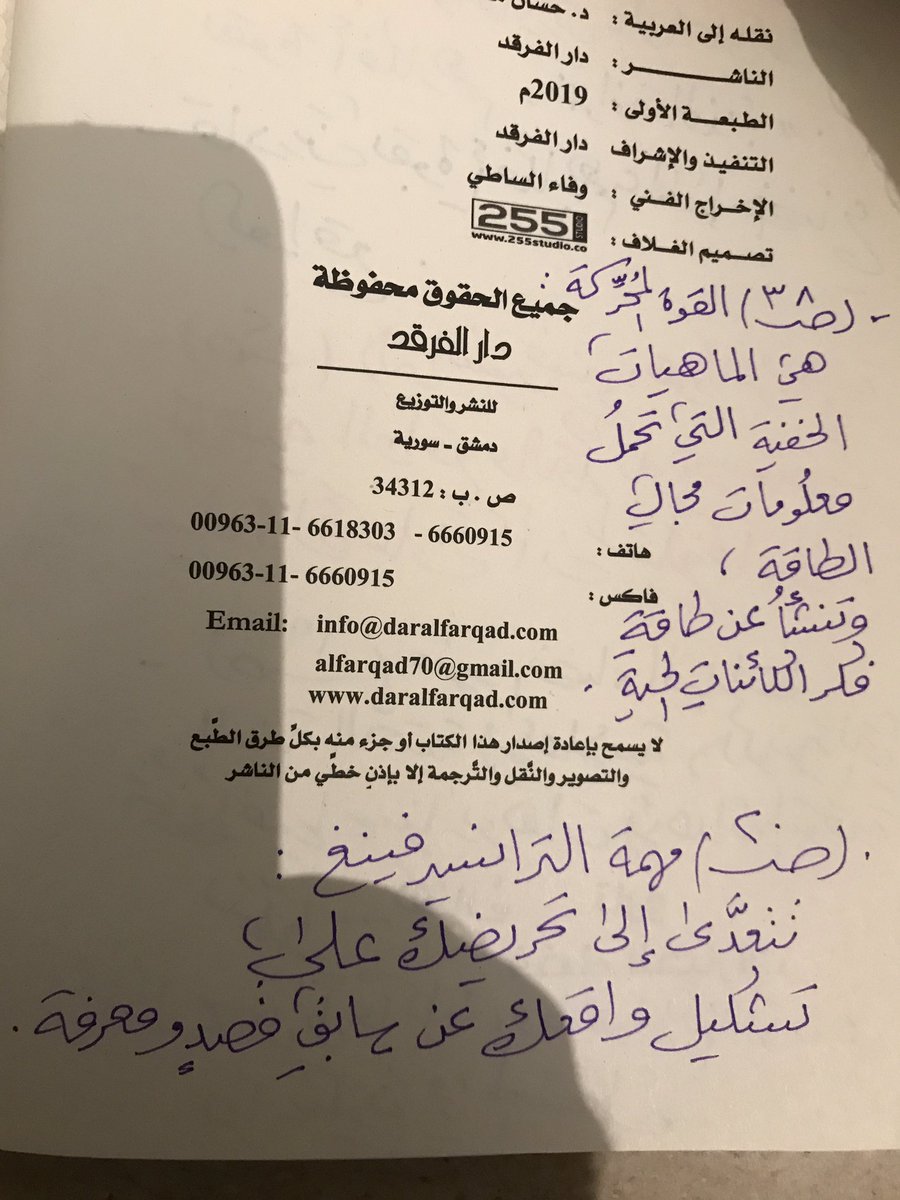 نقله إلى العربية : د. حسان
الناشـــــــر : دار الفرقد
الطبعـــة الأولى : 2019م
التنفيذ والإشراف دار الفرقد
الإخـراج الفـني : وفاء الساطي
تصـميم الغـلاف : 255 STUDIO
www.255studio.co
جميع الحقوق محفوظة
دار الفرقد
للنشر والتوزيع
دمشق - سورية
ص . ب : 34312
هاتف : 00963-11- 6618303 - 6660915
فاكس : 00963-11- 6660915
Email: info@daralfarqad.com
alfarqad70@gmail.com
www.daralfarqad.com
لا يسمح بإعادة إصدار هذا الكتاب أو جزء منه بكلِّ طرق الطَّبع
والتصوير والنَّقل والتَّرجمة إلا بإذنٍ خطِّي من الناشر
- (ص٣٨) القوة المُحرِّكة :
هي الماهيات
الخفية التي تحملُ
معلُومات مجال
الطاقة ،
وتنشأُ عن طاقة
فكر الكائنات الحية .
مهمة الترانسيرفينغ :
تتعدَّى إلى تحريضك على
تشكيل واقعك عن سابق قصدٍ ومعرفة .